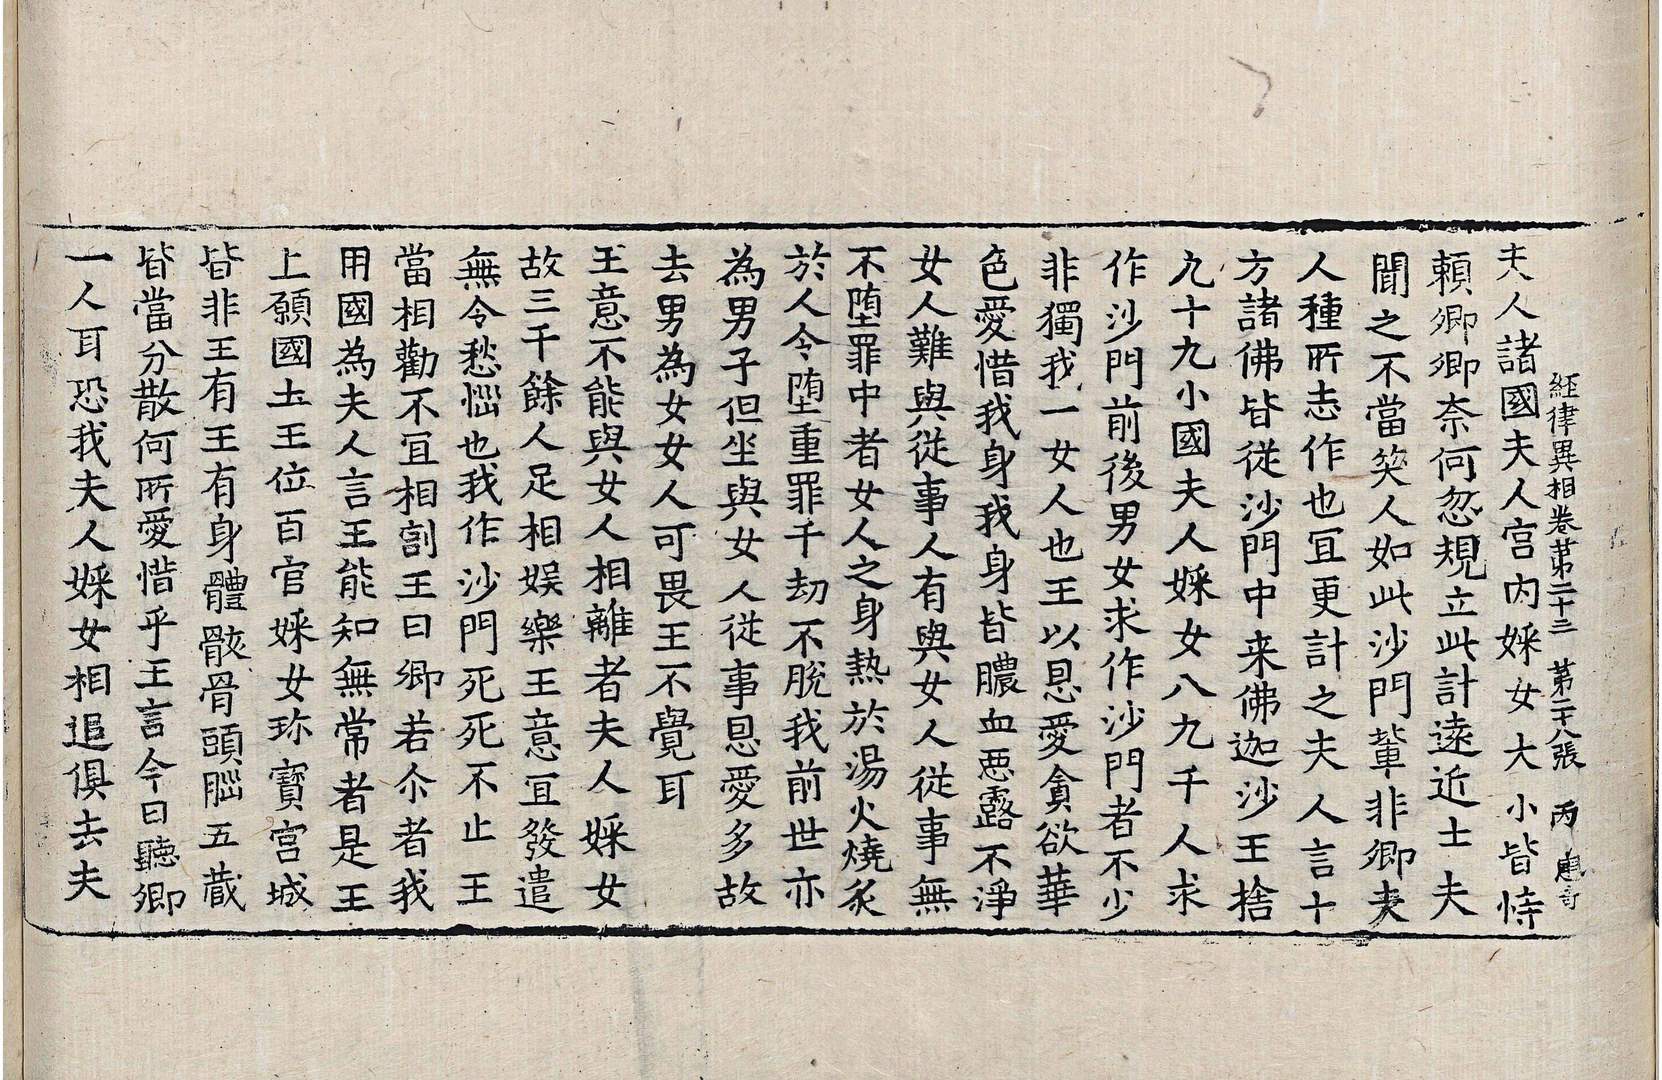 經律異相卷第二十三　第二十八張　丙
夫人諸國夫人宮內婇女大小皆恃
頼卿卿奈何忽規立此計遠近士夫
聞之不當笑人如此沙門輩非卿夫
人種所志作也冝更計之夫人言十
方諸佛皆從沙門中来佛迦沙王捨
九十九小國夫人婇女八九千人求
作沙門前後男女求作沙門者不少
非獨我一女人也王以恩愛貪欲華
色愛惜我身我身皆膿血惡露不淨
女人難與從事人有與女人從事無
不堕罪中者女人之身熱於湯火燒炙
於人令堕重罪千劫不脫我前世亦
為男子但坐與女人從事恩愛多故
去男為女女人可畏王不覺耳
王意不能與女人相離者夫人婇女
故三千餘人足相娛樂王意冝發遣
無令愁惱也我作沙門死死不止王
當相勸不冝相割王曰卿若尒者我
用國為夫人言王能知無常者是王
上願國土王位百官婇女珎寶宮城
皆非王有王有身體骸骨頭腦五藏
皆當分散何所愛惜乎王言今日聽卿
一人耳恐我夫人婇女相追俱去夫